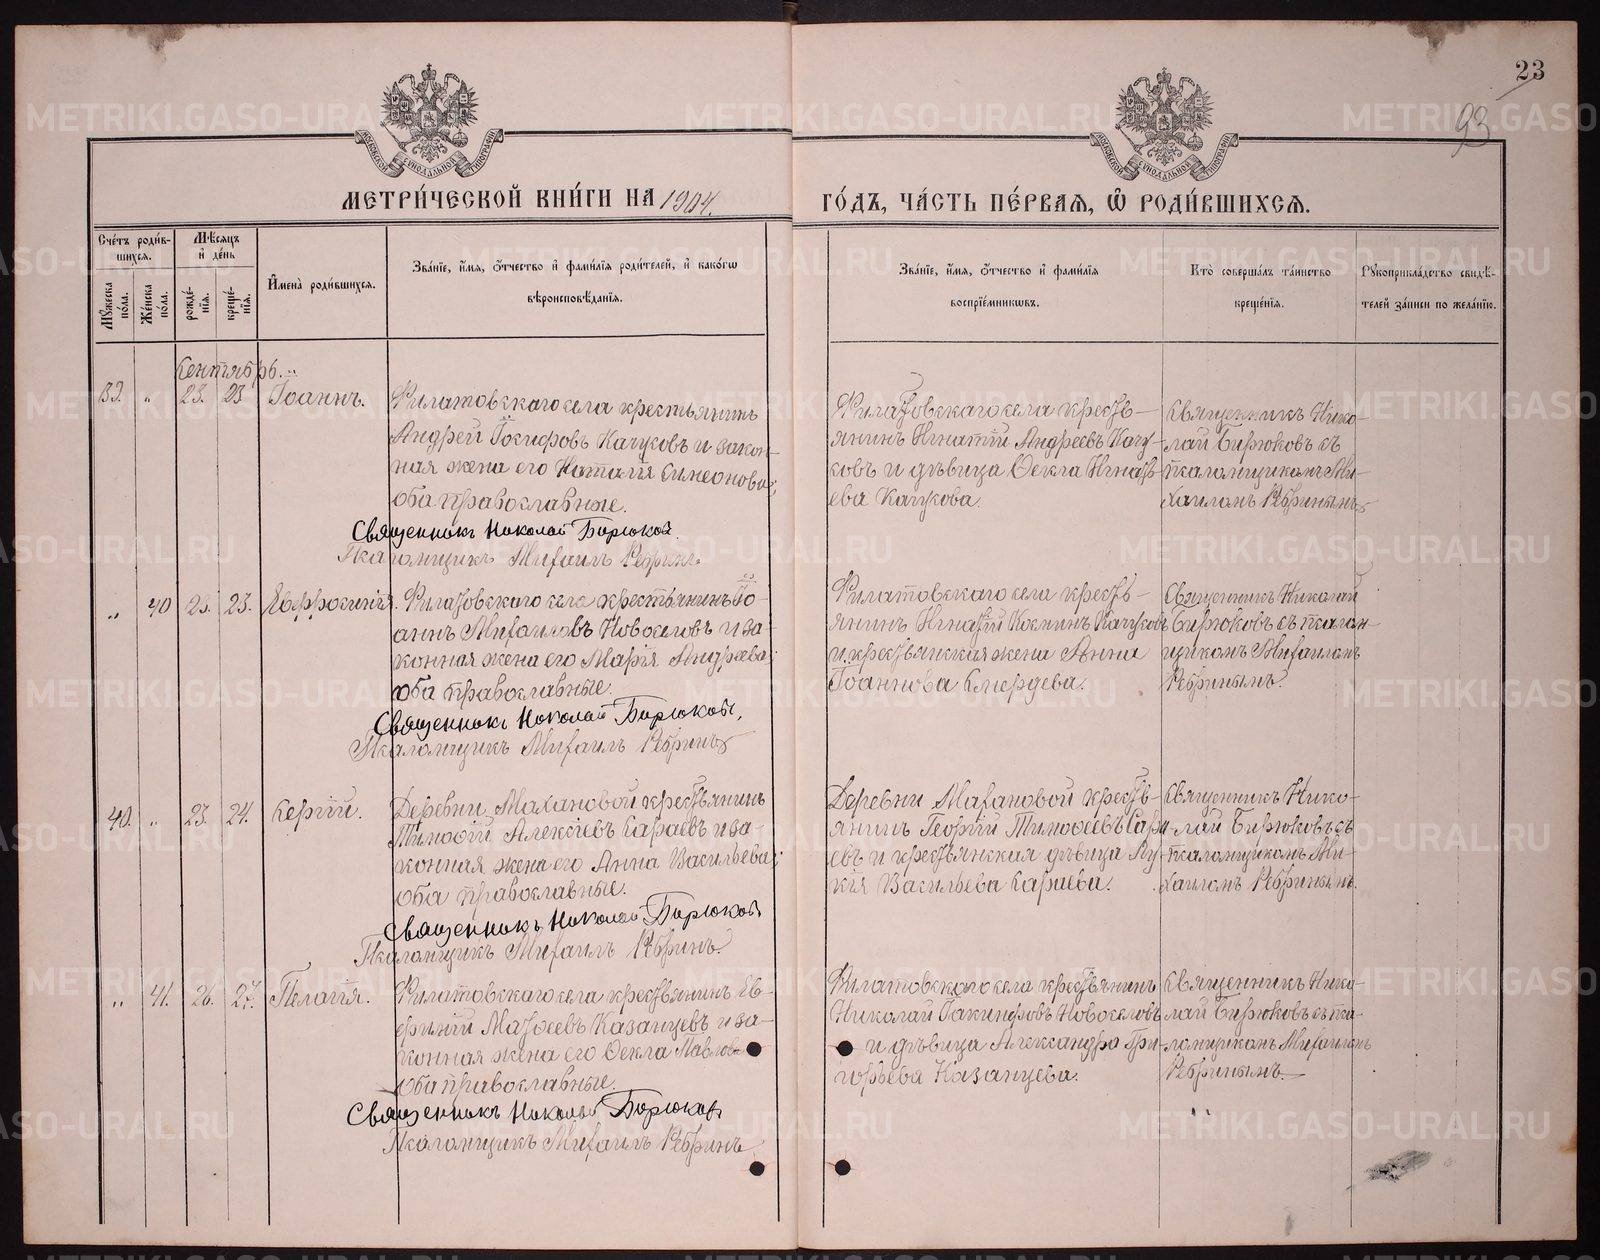 23
93.
МЕТРИ́ЧЕСКОЙ КНИ́ГИ НА 1904.
ГО́ДЪ, ЧА́СТЬ ПЕ́РВАЯ, Ѡ РОДИ́ВШИХСЯ.
Сче́тъ роди́вшихся.
Му́жеска по́ла.
Же́нска по́ла.
Мѣ́сяцъ и де́нь
рожде́нїя.
креще́нїя.
Имена̀ роди́вшихся.
Зва́нїе, и́мя, о́тчество и фами́лїя роди́телей, и како́гѡ
вѣроисповѣ́данїя.
Зва́нїе, и́мя, о́тчество и фами́лїя
воспрїе́мникѡвъ.
Кто̀ соверша́лъ та́инство
креще́нїя.
Рукоприкла́дство свидѣ́-
телей за́писи по жела́нїю.
Сентябрь.
39. „ 23. 23 Іоаннъ.
Филатовскаго села крестьянинъ
Андрей Іосифовъ Качуковъ и закон-
ная жена его Наталія Симеонова;
оба православные.
Священникъ Николай Бирюков.
Псаломщикъ Михаилъ Ребринъ.
Филатовскаго села кресть-
янинъ Игнатій Андреевъ Качу-
ковъ и дѣвица Ѳекла Игнать-
ева Качукова.
Священникъ Нико-
лай Бирюковъ съ
псаломщикомъ Ми-
хаиломъ Ребринымъ
„ 40 23. 23. Евфросинія.
Филатовскаго села крестьянинъ Іо-
аннъ Михаиловъ Новоселовъ и за-
конная жена его Марія Андреева;
оба православные.
Священникъ Николай Бирюков.
Псаломщикъ Михаилъ Ребринъ
Филатовскаго села кресть-
янинъ Игнатій Косминъ Качуковъ
и крестьянская жена Анна
Іоаннова Смердева.
Священникъ Николай
Бирюковъ съ псалом-
щикомъ Михаиломъ
Ребринымъ.
40. „ 23. 24. Сергій.
Деревни Махановой крестьянинъ
Тимоѳій Алексіевъ Сараевъ и за-
конная жена его Анна Васильева;
оба православные.
Священникъ Николай Бирюков
Псаломщикъ Михаилъ Ребринъ.
Деревни Махановой кресть-
янинъ Георгій Тимоѳеевъ Сара-
евъ и крестьянская дѣвица Лу-
кія Васильева Сараева.
Священникъ Нико-
лай Бирюковъ съ
псаломщикомъ Ми-
хаиломъ Ребринымъ.
„ 41. 26. 27. Пелагія.
Филатовскаго села крестьянинъ Ев-
фимій Матѳеевъ Казанцевъ и за-
конная жена его Ѳекла Павлов
оба православные.
Священникъ Николай Бирюков
Псаломщикъ Михаилъ Ребринъ
Филатовскаго села крестьянинъ
Николай Іакинфовъ Новоселовъ
и дѣвица Александра Гри-
горьева Казанцева.
Священникъ Нико-
лай Бирюковъ съ пса-
ломщикомъ Михаиломъ
Ребринымъ.